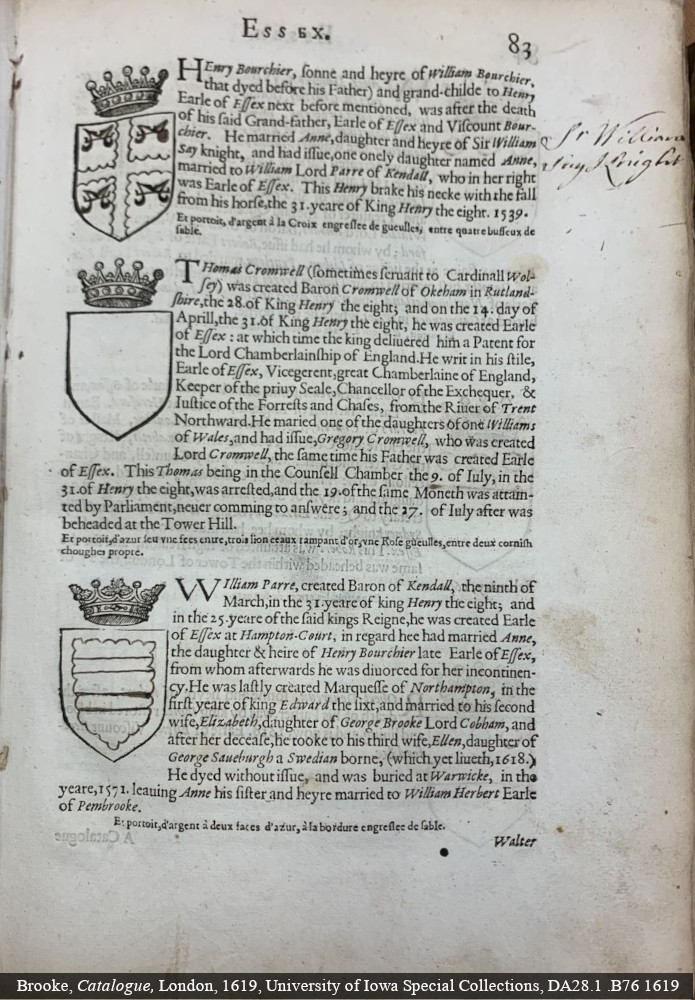 ESSEX.
83
HEnry Bourchier, sonne and heyre of William Bourchier,
that dyed before his Father) and grand-childe to Henry
Earle of Essex next before mentioned, was after the death
of his said Grand-father, Earle of Essex and Viscount Bour-
chier. He married Anne, daughter and heyre of Sir William
Say knight, and had issue, one onely daughter named Anne,
married to William Lord Parre of Kendall, who in her right
was Earle of Essex. This Henry brake his necke with the fall
from his horse, the 31. yeare of King Henry the eight. 1539.
Et portoit, d'argent à la Croix engreslee de gueulles, entre quatre busseux de
sable.
Sr William
Say Knight
THomas Cromwell (sometimes seruant to Cardinall Wol-
sey) was created Baron Cromwell of Okeham in Rutland-
shire, the 28. of King Henry the eight; and on the 14. day of
Aprill, the 31. of King Henry the eight, he was created Earle
of Essex: at which time the king deliuered him a Patent for
the Lord Chamberlainship of England. He writ in his stile,
Earle of Essex, Vicegerent, great Chamberlaine of England,
Keeper of the priuy Seale, Chancellor of the Exchequer, &
Iustice of the Forrests and Chases, from the Riuer of Trent
Northward. He maried one of the daughters of one Williams
of Wales, and had issue, Gregory Cromwell, who was created
Lord Cromwell, the same time his Father was created Earle
of Essex. This Thomas being in the Counsell Chamber the 9. of Iuly, in the
31. of Henry the eight, was arrested, and the 19. of the same Moneth was attain-
ted by Parliament, neuer comming to answere; and the 27. of Iuly after was
beheaded at the Tower Hill.
Et portoit, d'azur seu vne fees entre, trois lionceaux rampant d'or, vne Rose gueulles, entre deux cornish
choughes propre.
WIlliam Parre, created Baron of Kendall, the ninth of
March, in the 31. yeare of king Henry the eight; and
in the 25. yeare of the said kings Reigne, he was created Earle
of Essex at Hampton-Court, in regard hee had married Anne,
the daughter & heire of Henry Bourchier late Earle of Essex,
from whom afterwards he was diuorced for her incontinen-
cy. He was lastly created Marquesse of Northampton, in the
first yeare of king Edward the sixt, and married to his second
wife, Elizabeth, daughter of George Brooke Lord Cobham, and
after her decease, he tooke to his third wife, Ellen, daughter of
George Saueburgh a Swedian borne, (which yet liueth, 1618.)
He dyed without issue, and was buried at Warwicke, in the
yeare, 1571. leauing Anne his sister and heyre married to William Herbert Earle
of Pembrooke.
Et portoit, d'argent à deux faces d'azur, à la bordure engreslee de sable.
Walter
Brooke, Catalogue, London, 1619, University of Iowa Special Collections, DA28.1 .B76 1619